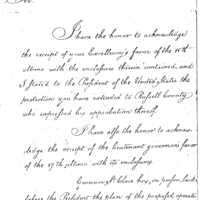 Sir.
I have the honor to acknowledge
the receipt of your Excellency's favor of the 11th
ultimo with the enclosure therein contained, and
I stated to the President of the United States the
protection you have extended to Russell County
who expressed his approbation thereof.
I have also the honor to acknow-
ledge the receipt of the lieutenant governors favor
of the 27th ultimo with its enclosures
Governor St Clair has, in person, laid
before the President the plan of the proposed operati